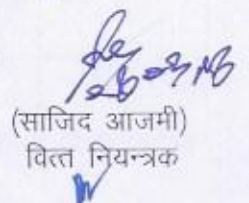 (साजिद आजमी)
वित्त नियन्त्रक